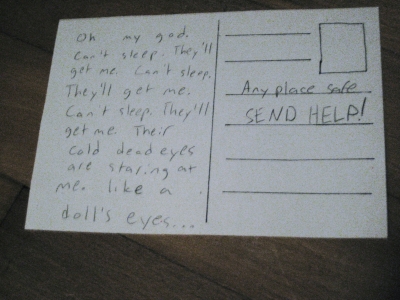 Oh my god.
Can't sleep. They'll
get me. Can't sleep.
They'll get me.
Can't sleep. They'll
get me. Their
cold dead eyes
are staring at
me. like a
doll's eyes...
Any place safe
SEND HELP!